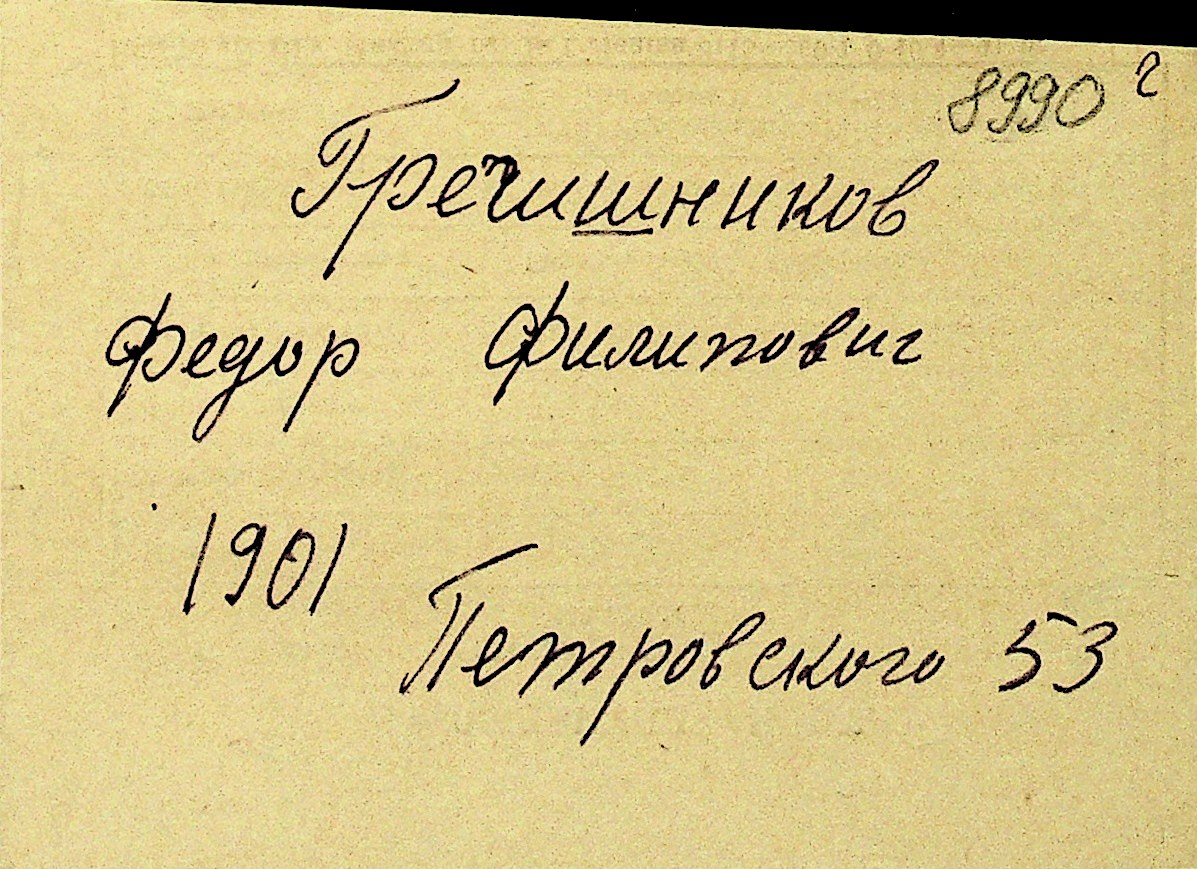 8990 г
Гречишников
Федор Филипович
1901
Петровского 53